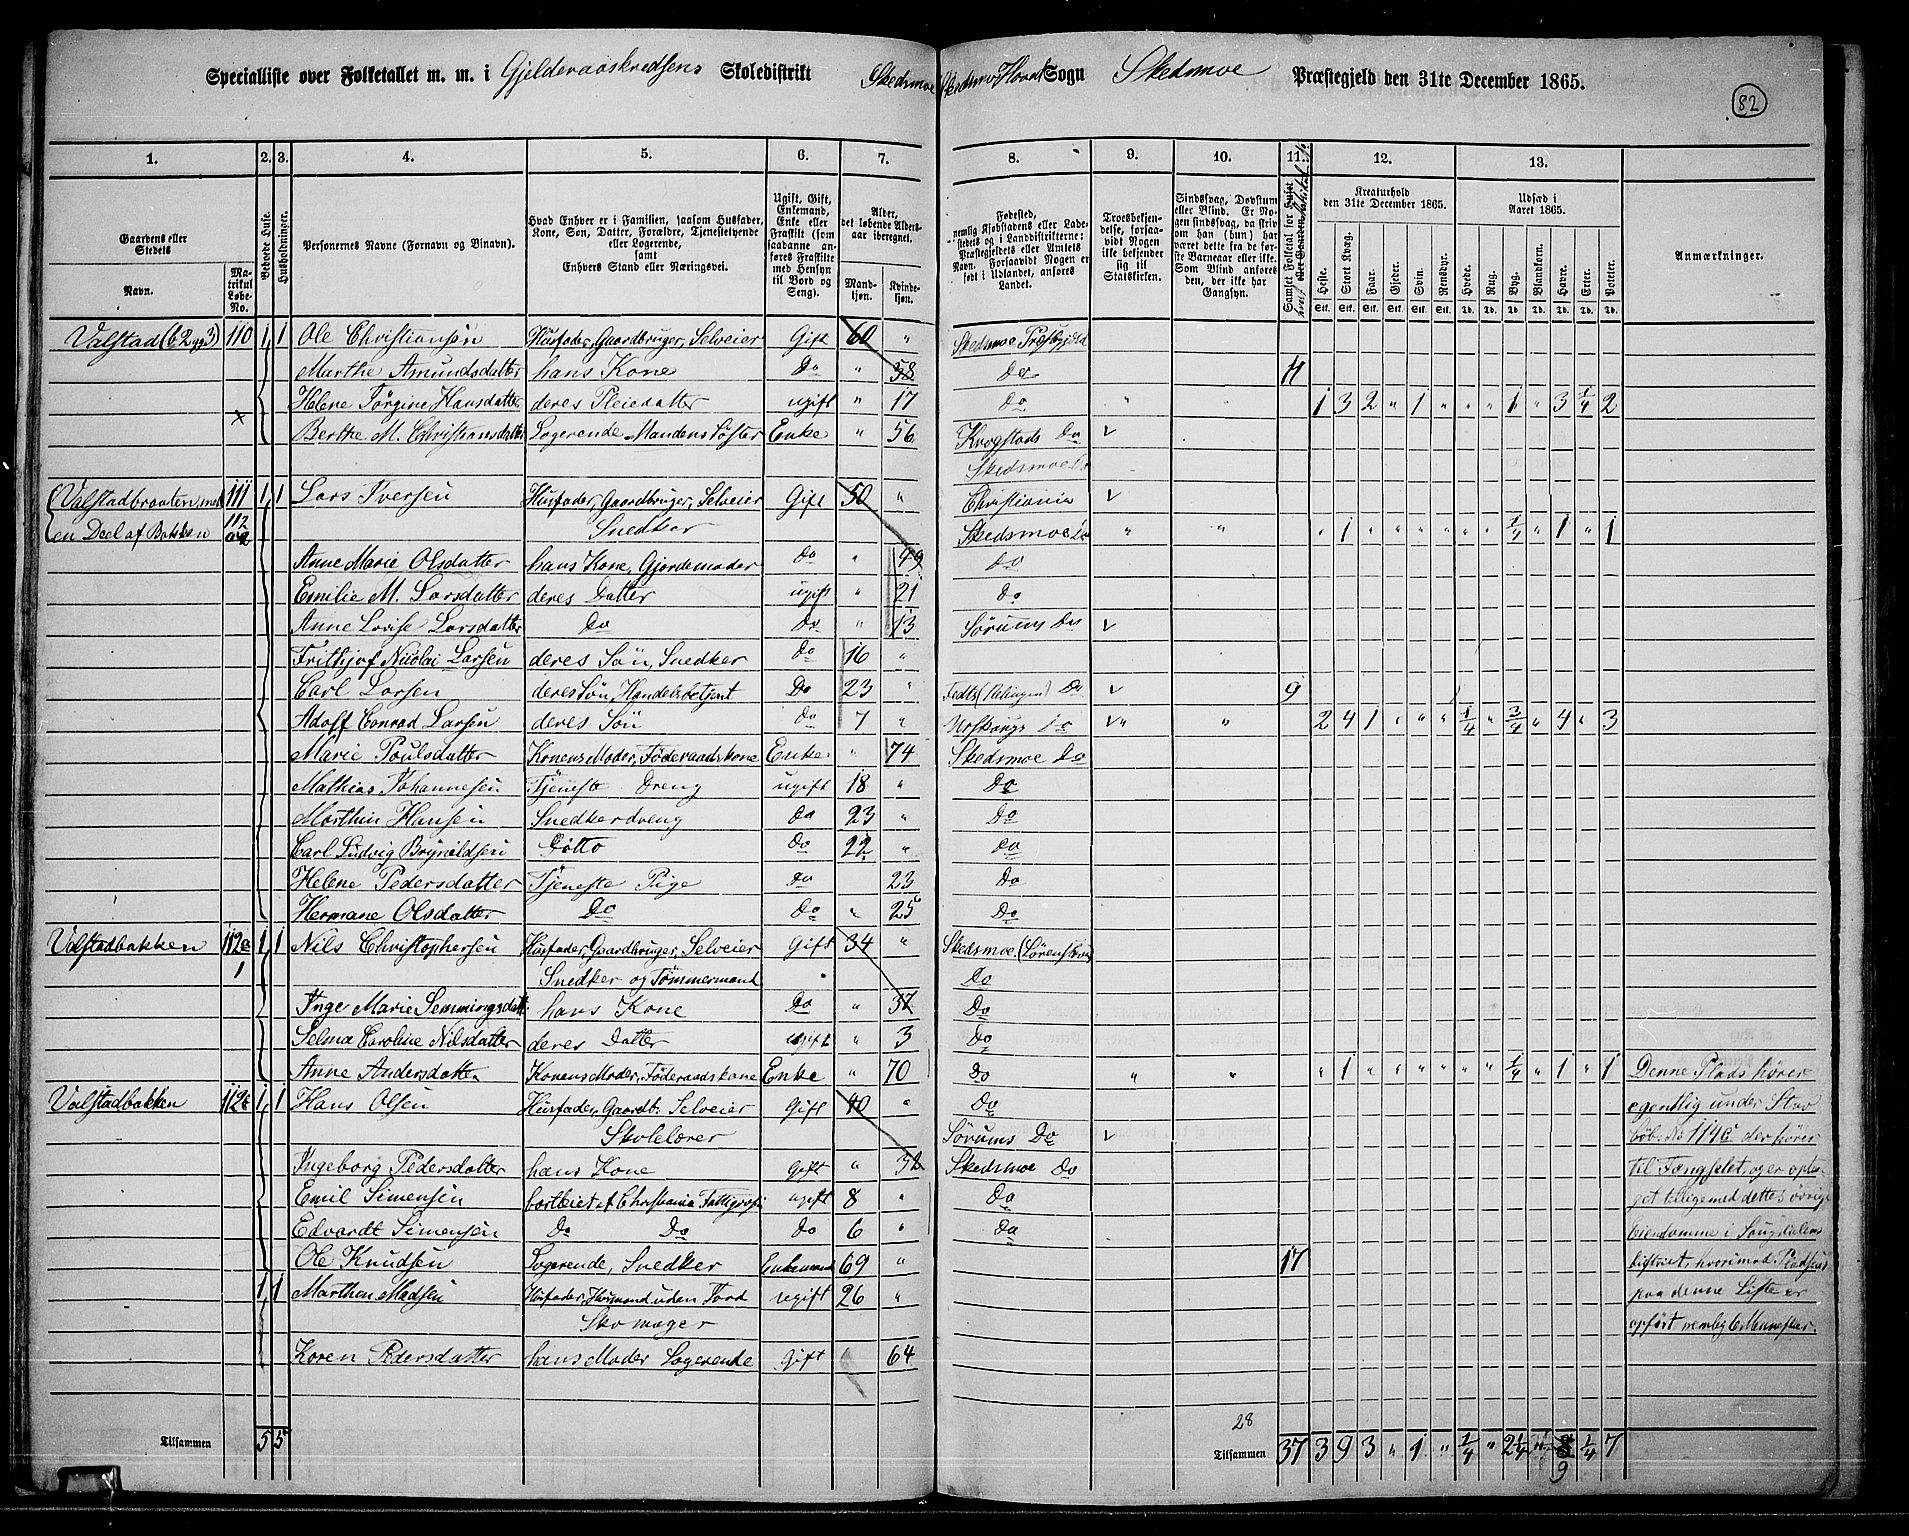 Specialliste over Folketallet m. m. i Gjelderaaskredsens Skoledistrikt Skedsmoe Skedsmo Hoved Sogn Skedsmoe Præstegjeld den 31te December 1865.
82
1. 2. 3. 4. 5. 6. 7. 8. 9. 10. 11. 12. 13.
Gaardens eller Stedets Navn.
Matrikul Løbe-No.
Bebode Huse.
Husholdninger.
Personernes Navne (Fornavn og Binavn).
Hvad Enhver er i Familien, saasom Husfader, Kone, Søn, Datter, Forældre, Tjenestetyende eller Logerende, samt Enhvers Stand eller Næringsvei.
Ugift, Gift, Enkemand, Enke eller Fraskilt (som saadanne anføres Fraskilte med Hensyn til Bord og Seng).
Alder, det løbende Aldersaar iberegnet.
Mandkjøn. Kvindekjøn.
Fødested, nemlig Kjøbstadens eller Ladestedets og i Landdistrikterne: Præstegjeldets eller Amtets Navn. Forsaavidt Nogen er født i Udlandet, anføres Landet.
Troesbekjendelse, forsaavidt Nogen ikke bekjender sig til Statskirken.
Sindssvag, Døvstum eller Blind. Er Nogen sindssvag, da skriv om han (hun) har været dette fra de første Barneaar eller ikke. Som Blind anføres den, der ikke har Gangsyn.
Kreaturhold den 31te December 1865.
Heste. Stort Kvæg. Faar. Gjeder. Svin. Rensdyr.
Udsæd i Aaret 1865.
Hvede. Rug. Byg. Blandkorn. Havre. Erter. Poteter.
Anmærkninger.
Valstad (b2 og 3) 110 1 1 Ole Christiansen Husfader, Gaardbruger, Selveier Gift 60 " Skedsmoe Præstegjeld
Marthe Amundsdatter hans Kone Do " 58 Do 4
Helene Jørgine Hansdatter deres Pleiedatter ugift " 17 Do " " 1 3 2 " 1 " " " 1 " 3 1/4 2
Berthe M. Christiansdatter Logerende Mandens Søster Enke " 56 Krogstads Do
Skedsmoe Do
Valstadbraaten, med 111 1 1 Lars Iversen Husfader, Gaardbruger, Selveier Gift 50 " Christiania
en Deel af Bakken 112 Snedker Skedsmoe Do " " " 1 " " " " " " 1/4 " 1 " 1
Anne Marie Olsdatter hans Kone, Gjordemoder Do " 49 Do
Emilie M. Larsdatter deres Datter ugift " 21 Do
Anne Lovise Larsdatter Do Do " 13 Sørums Do
Frithjof Nicolai Larsen deres Søn, Snedker Do 16 "
Carl Larsen deres Søn, Handelsbetjent Do 23 " Do 9
Adolf Conrad Larsen deres Søn Do 7 " Do " " 2 4 1 " " " 1/4 " 3/4 " 4 " 3
Marie Poulsdatter Konens Moder, Føderaadskone Enke " 74 Skedsmoe Do
Mathias Johannesen Tjeneste Dreng ugift 18 " Do
Marthin Hansen Snedkerdreng Do 23 " Do
Carl Ludvig Brynildsen Ditto Do 22 " Do
Helene Pedersdatter Tjeneste Pige Do 23 Do
Hermane Olsdatter Do Do " 25 Do
Valstadbakken 112a 1 1 Nils Christophersen Husfader, Gaardbruger, Selveier Gift 34 " Skedsmoe (Lørenskoug)
1 Snedker og Tømmermand Do
Inge Marie Semmingsdatt. hans Kone Do " 37 Do
Selma Caroline Nilsdatter deres Datter ugift " 3 Do
Anne Andersdatter Konens Moder, Føderaadskone Enke " 70 Do " " " 1 " " " " " " 1/4 " 1 " 1 Denne Plads hører
Valstadbakken 112b 1 1 Hans Olsen Husfader, Gaardb. Selveier Gift 40 " Do egentlig under
Skolelærer Sørums Do No 114c der hører
Ingeborg Pedersdatter hans Kone gift " 32 Skedsmoe Do til Fængselet, og er opta-
Emil Simensen bortleiet af Christiania Fattigvæsen ugift 8 " Do get tilligemed dettes øvrige
Edvardt Simensen Do Do Do 6 " Do eiendomme i
Ole Knudsen Logerende, Snedker Enkemand 69 " 17 district, hvorimod
1 1 Marthin Madsen Husfader, Huusmand uden Jord ugift 26 " paa denne Liste er
Skomager opført nemlig 6 Mennesker.
Karen Pedersdatter hans Moder Logerende Gift 64
28
Tilsammen 5 5
Tilsammen 37 3 9 3 " 1 " 1/4 " 2 1/4 " 8 1/4 7
9